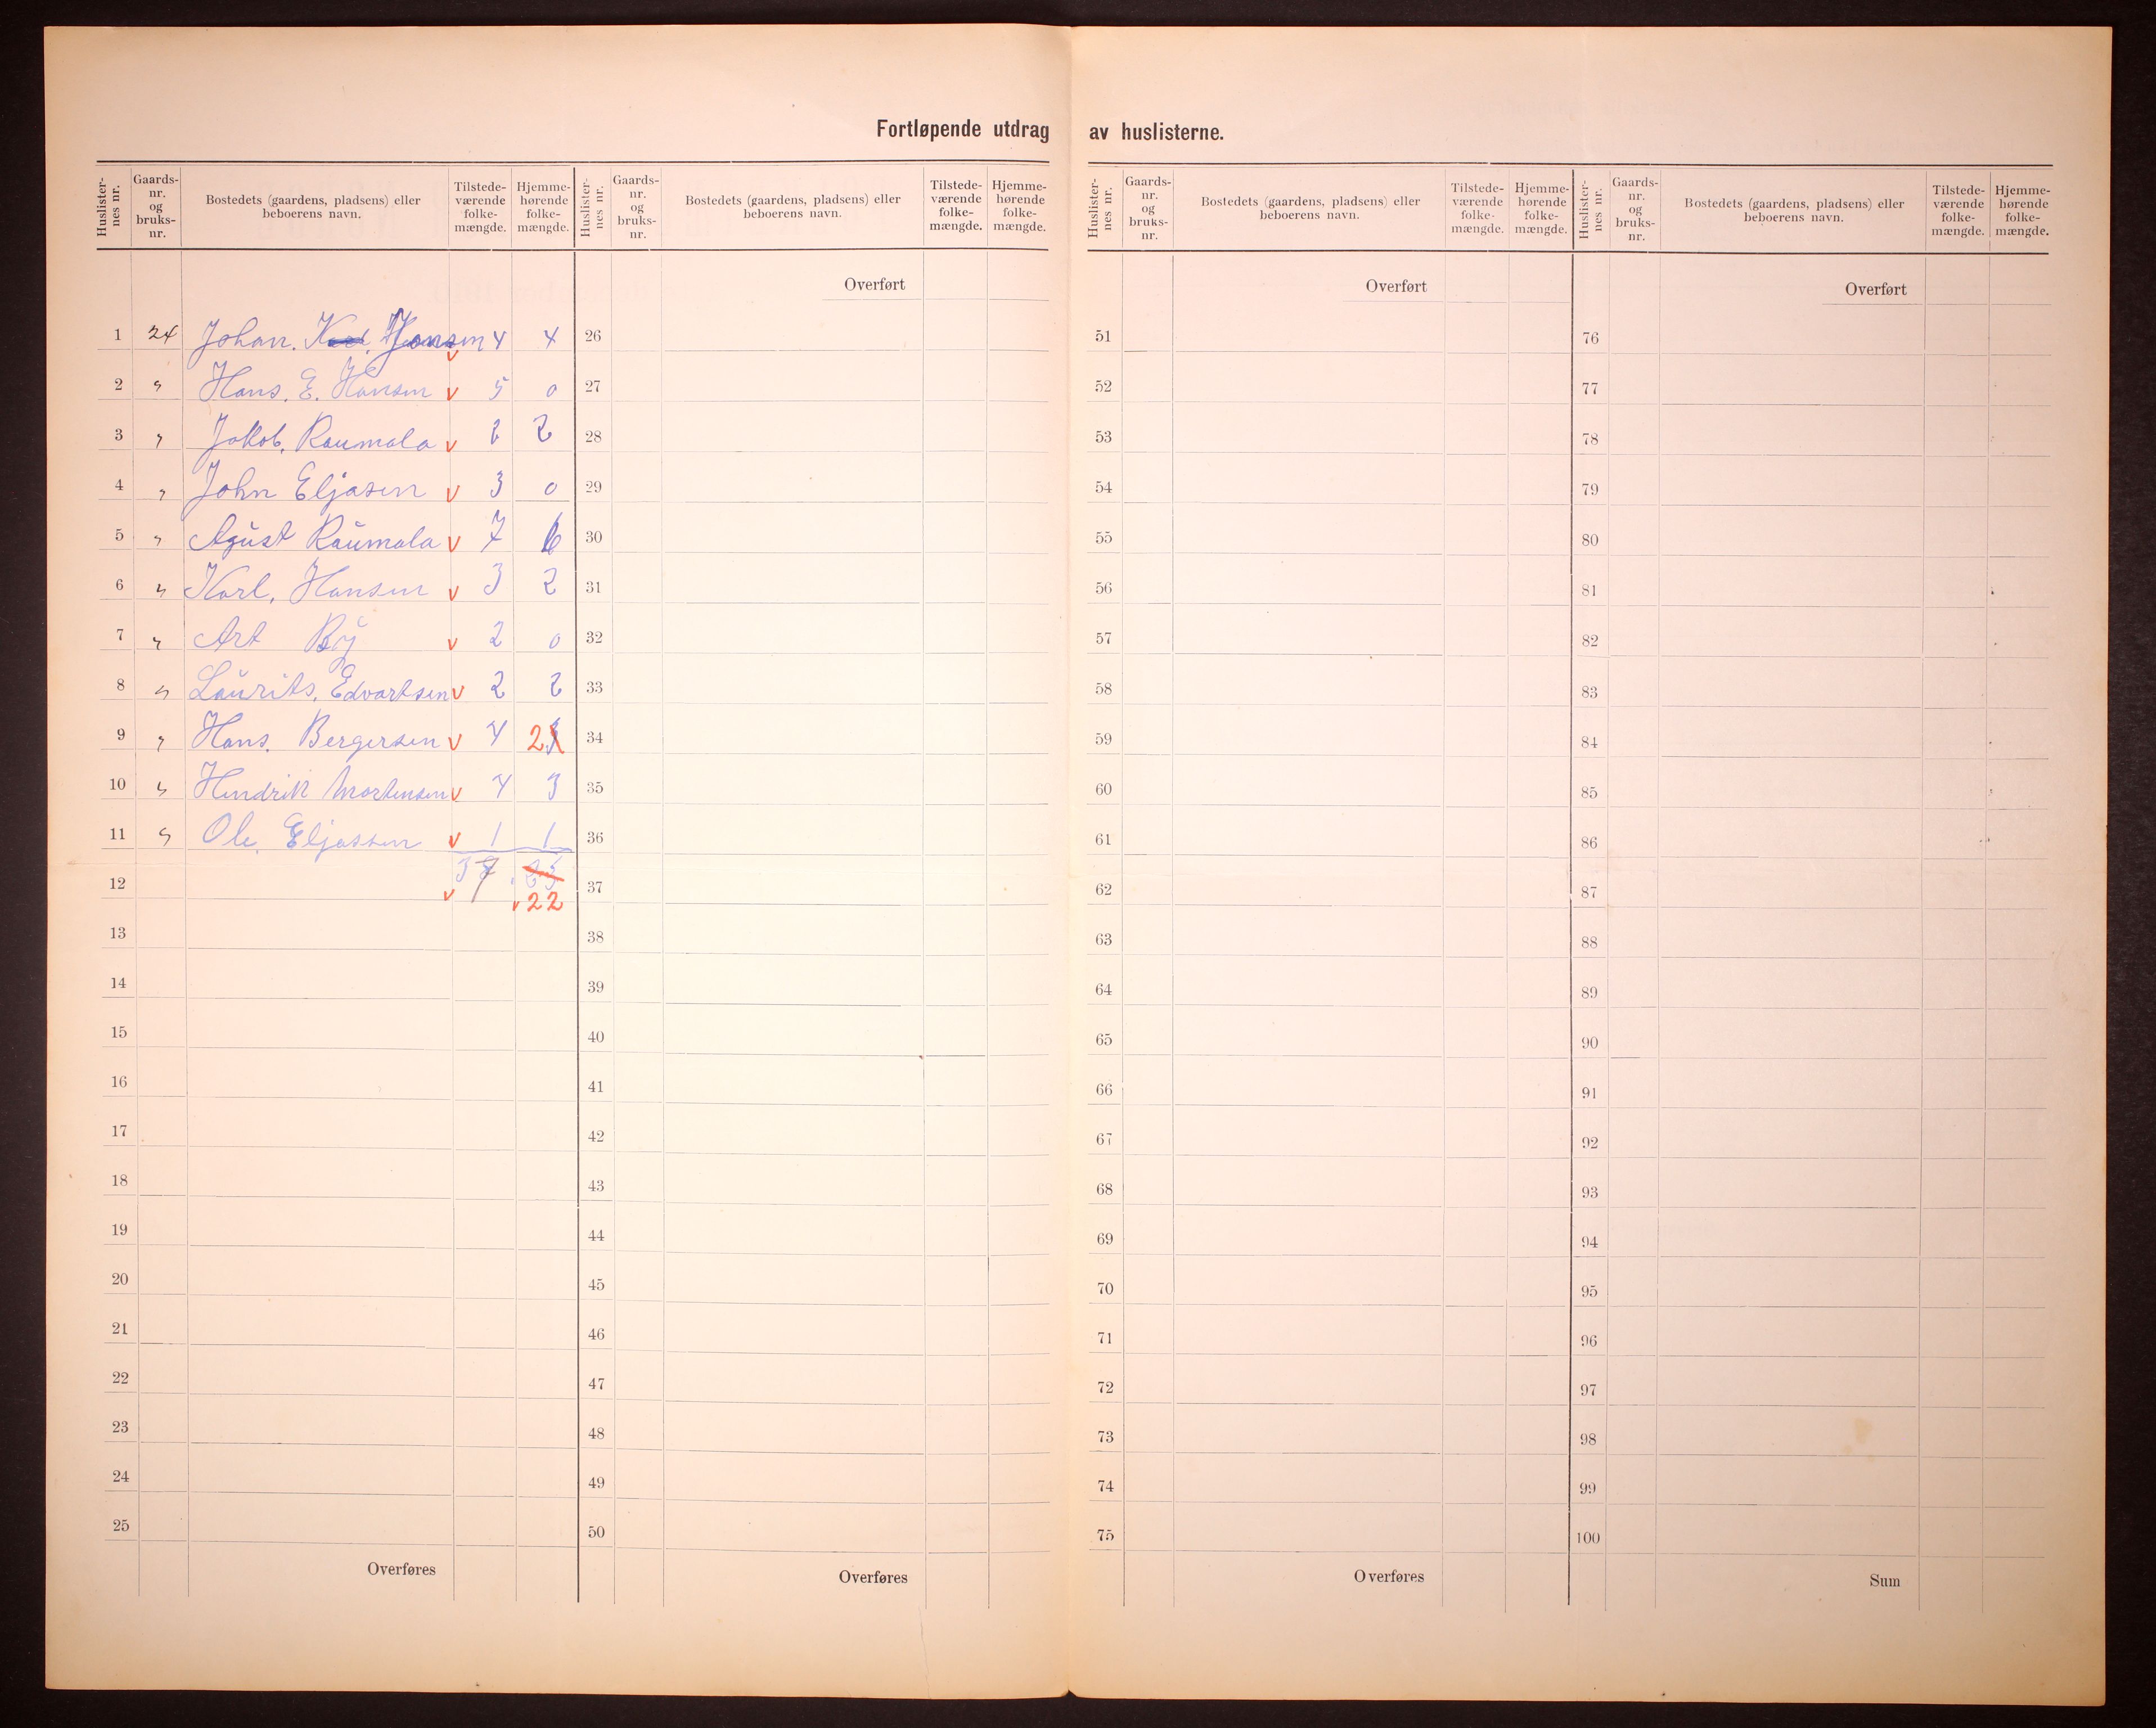 Fortløpende utdrag av huslisterne.
Huslisternes nr. Gaards-nr. og bruks-nr. Bostedets (gaardens, pladsens) eller beboerens navn. Tilstede-værende folke-mængde. Hjemme-hørende folke-mængde. Huslisternes nr. Gaards-nr. og bruks-nr. Bostedets (gaardens, pladsens) eller beboerens navn. Tilstede-værende folke-mængde. Hjemme-hørende folke-mængde. Huslisternes nr. Gaards-nr. og bruks-nr. Bostedets (gaardens, pladsens) eller beboerens navn. Tilstede-værende folke-mængde. Hjemme-hørende folke-mængde. Huslisternes nr. Gaards-nr. og bruks-nr. Bostedets (gaardens, pladsens) eller beboerens navn. Tilstede-værende folke-mængde. Hjemme-hørende folke-mængde.
Overført Overført Overført
1 24 Johan. Hansen 4 4 26 51 76
2 " Hans. E. Hansen v 5 0 27 52 77
3 " Jakob. Raumala v 2 2 28 53 78
4 " John Eljasen v 3 0 29 54 79
5 " Agust Raumala v 7 6 30 55 80
6 " Karl. Hansen v 3 2 31 56 81
7 " Art By v 2 0 32 57 82
8 " Laurits. Edvartsen v 2 2 33 58 83
9 " Hans. Bergersen v 4 2 34 59 84
10 " Hendrik Mortensen v 4 3 35 60 85
11 " Ole. Eljassen v 1 1 36 61 86
12 v 37 23 v 22 37 62 87
13 38 63 88
14 39 64 89
15 40 65 90
16 41 66 91
17 42 67 92
18 43 68 93
19 44 69 94
20 45 70 95
21 46 71 96
22 47 72 97
23 48 73 98
24 49 74 99
25 50 75 100
Overføres Overføres Overføres Sum